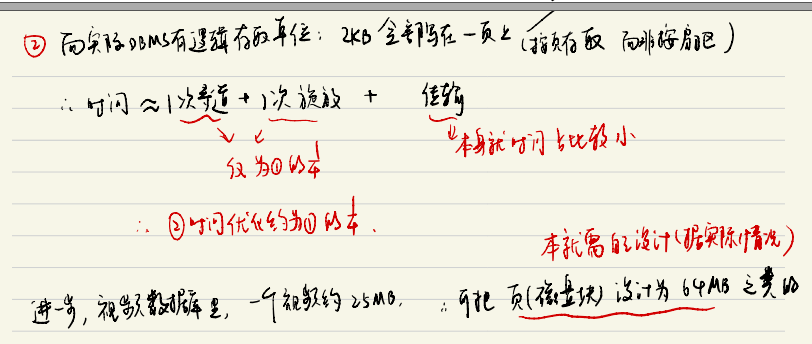 ② 而实际DBMS有逻辑存取单位：2KB 全部写在一页上 (按页存取 而非按扇区)
∴ 时间 ≈ 1次寻道 + 1次旋转 + 传输
仅为①的1/4
本身就时间占比较小
∴ ②时间优化约为①的1/4.
本就需自主设计(据实际情况)
进一步, 视频数据库里, 一个视频约25MB. ∴ 可把 页(磁盘块) 设计为 64MB 之类的